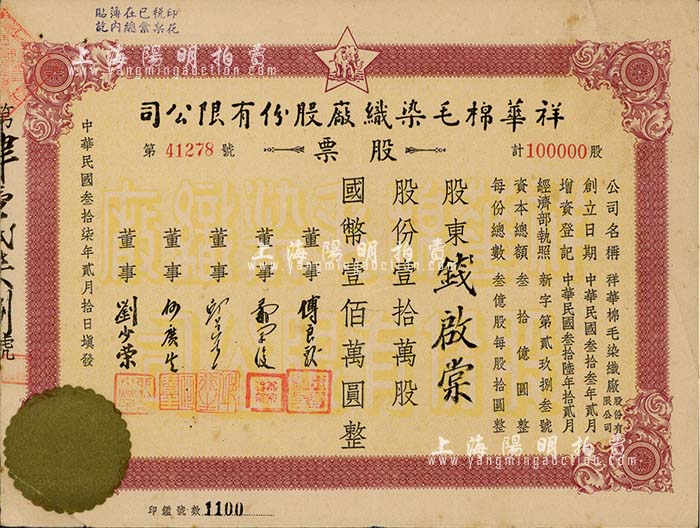 印花稅已在滬貼
花票總彙內記
上海陽明拍賣
www.yangmingauction.com
司公限有份股廠織染毛棉華祥
票股
計100000股
第 41278 號
公司名稱 祥華棉毛染織廠股份有限公司
創立日期 中華民國叁拾叁年貳月
增資登記 中華民國叁拾陸年拾貳月
經濟部執照 新字第貳玖捌叁號
資本總額 叁拾億圓整
每份總數 叁億股每股拾圓整
股東 錢啟棠
股份壹拾萬股
國幣壹佰萬圓整
董事 傅良駿
董事
董事
董事 何廣生
董事 劉少榮
中華民國叁拾柒年貳月拾日填發
上海陽明拍賣
www.yangmingauction.com
上海陽明拍賣
www.yangmingauction.com
印鑑號數 1100